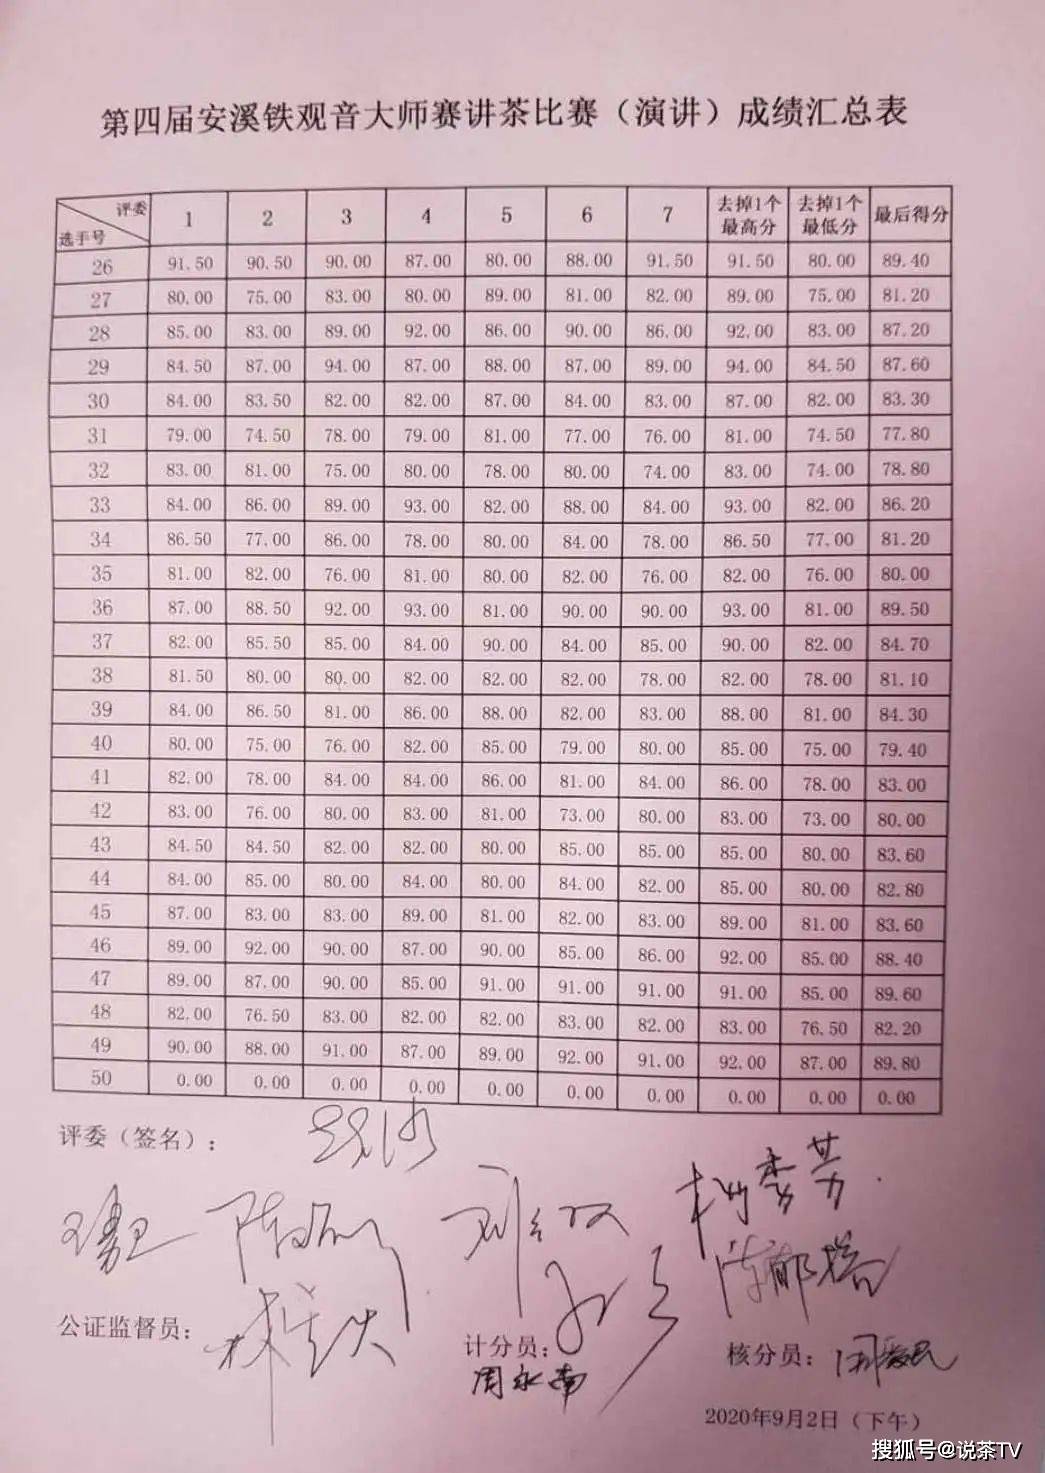 第四届安溪铁观音大师赛讲茶比赛（演讲）成绩汇总表
评委 选手号 1 2 3 4 5 6 7 去掉1个最高分 去掉1个最低分 最后得分
26 91.50 90.50 90.00 87.00 80.00 88.00 91.50 91.50 80.00 89.40
27 80.00 75.00 83.00 80.00 89.00 81.00 82.00 89.00 75.00 81.20
28 85.00 83.00 89.00 92.00 86.00 90.00 86.00 92.00 83.00 87.20
29 84.50 87.00 94.00 87.00 88.00 87.00 89.00 94.00 84.50 87.60
30 84.00 83.50 82.00 82.00 87.00 84.00 83.00 87.00 82.00 83.30
31 79.00 74.50 78.00 79.00 81.00 77.00 76.00 81.00 74.50 77.80
32 83.00 81.00 75.00 80.00 78.00 80.00 74.00 83.00 74.00 78.80
33 84.00 86.00 89.00 93.00 82.00 88.00 84.00 93.00 82.00 86.20
34 86.50 77.00 86.00 78.00 80.00 84.00 78.00 86.50 77.00 81.20
35 81.00 82.00 76.00 81.00 80.00 82.00 76.00 82.00 76.00 80.00
36 87.00 88.50 92.00 93.00 81.00 90.00 90.00 93.00 81.00 89.50
37 82.00 85.50 85.00 84.00 90.00 84.00 85.00 90.00 82.00 84.70
38 81.50 80.00 80.00 82.00 82.00 82.00 78.00 82.00 78.00 81.10
39 84.00 86.50 81.00 86.00 88.00 82.00 83.00 88.00 81.00 84.30
40 80.00 75.00 76.00 82.00 85.00 79.00 80.00 85.00 75.00 79.40
41 82.00 78.00 84.00 84.00 86.00 81.00 84.00 86.00 78.00 83.00
42 83.00 76.00 80.00 83.00 81.00 73.00 80.00 83.00 73.00 80.00
43 84.50 84.50 82.00 82.00 80.00 85.00 85.00 85.00 80.00 83.60
44 84.00 85.00 80.00 84.00 80.00 84.00 82.00 85.00 80.00 82.80
45 87.00 83.00 83.00 89.00 81.00 82.00 83.00 89.00 81.00 83.60
46 89.00 92.00 90.00 87.00 90.00 85.00 86.00 92.00 85.00 88.40
47 89.00 87.00 90.00 85.00 91.00 91.00 91.00 91.00 85.00 89.60
48 82.00 76.50 83.00 82.00 82.00 83.00 82.00 83.00 76.50 82.20
49 90.00 88.00 91.00 87.00 89.00 92.00 91.00 92.00 87.00 89.80
50 0.00 0.00 0.00 0.00 0.00 0.00 0.00 0.00 0.00 0.00
评委（签名）：
公证监督员： 计分员： 周永南 核分员：
2020年9月2日（下午）
搜狐号@说茶TV